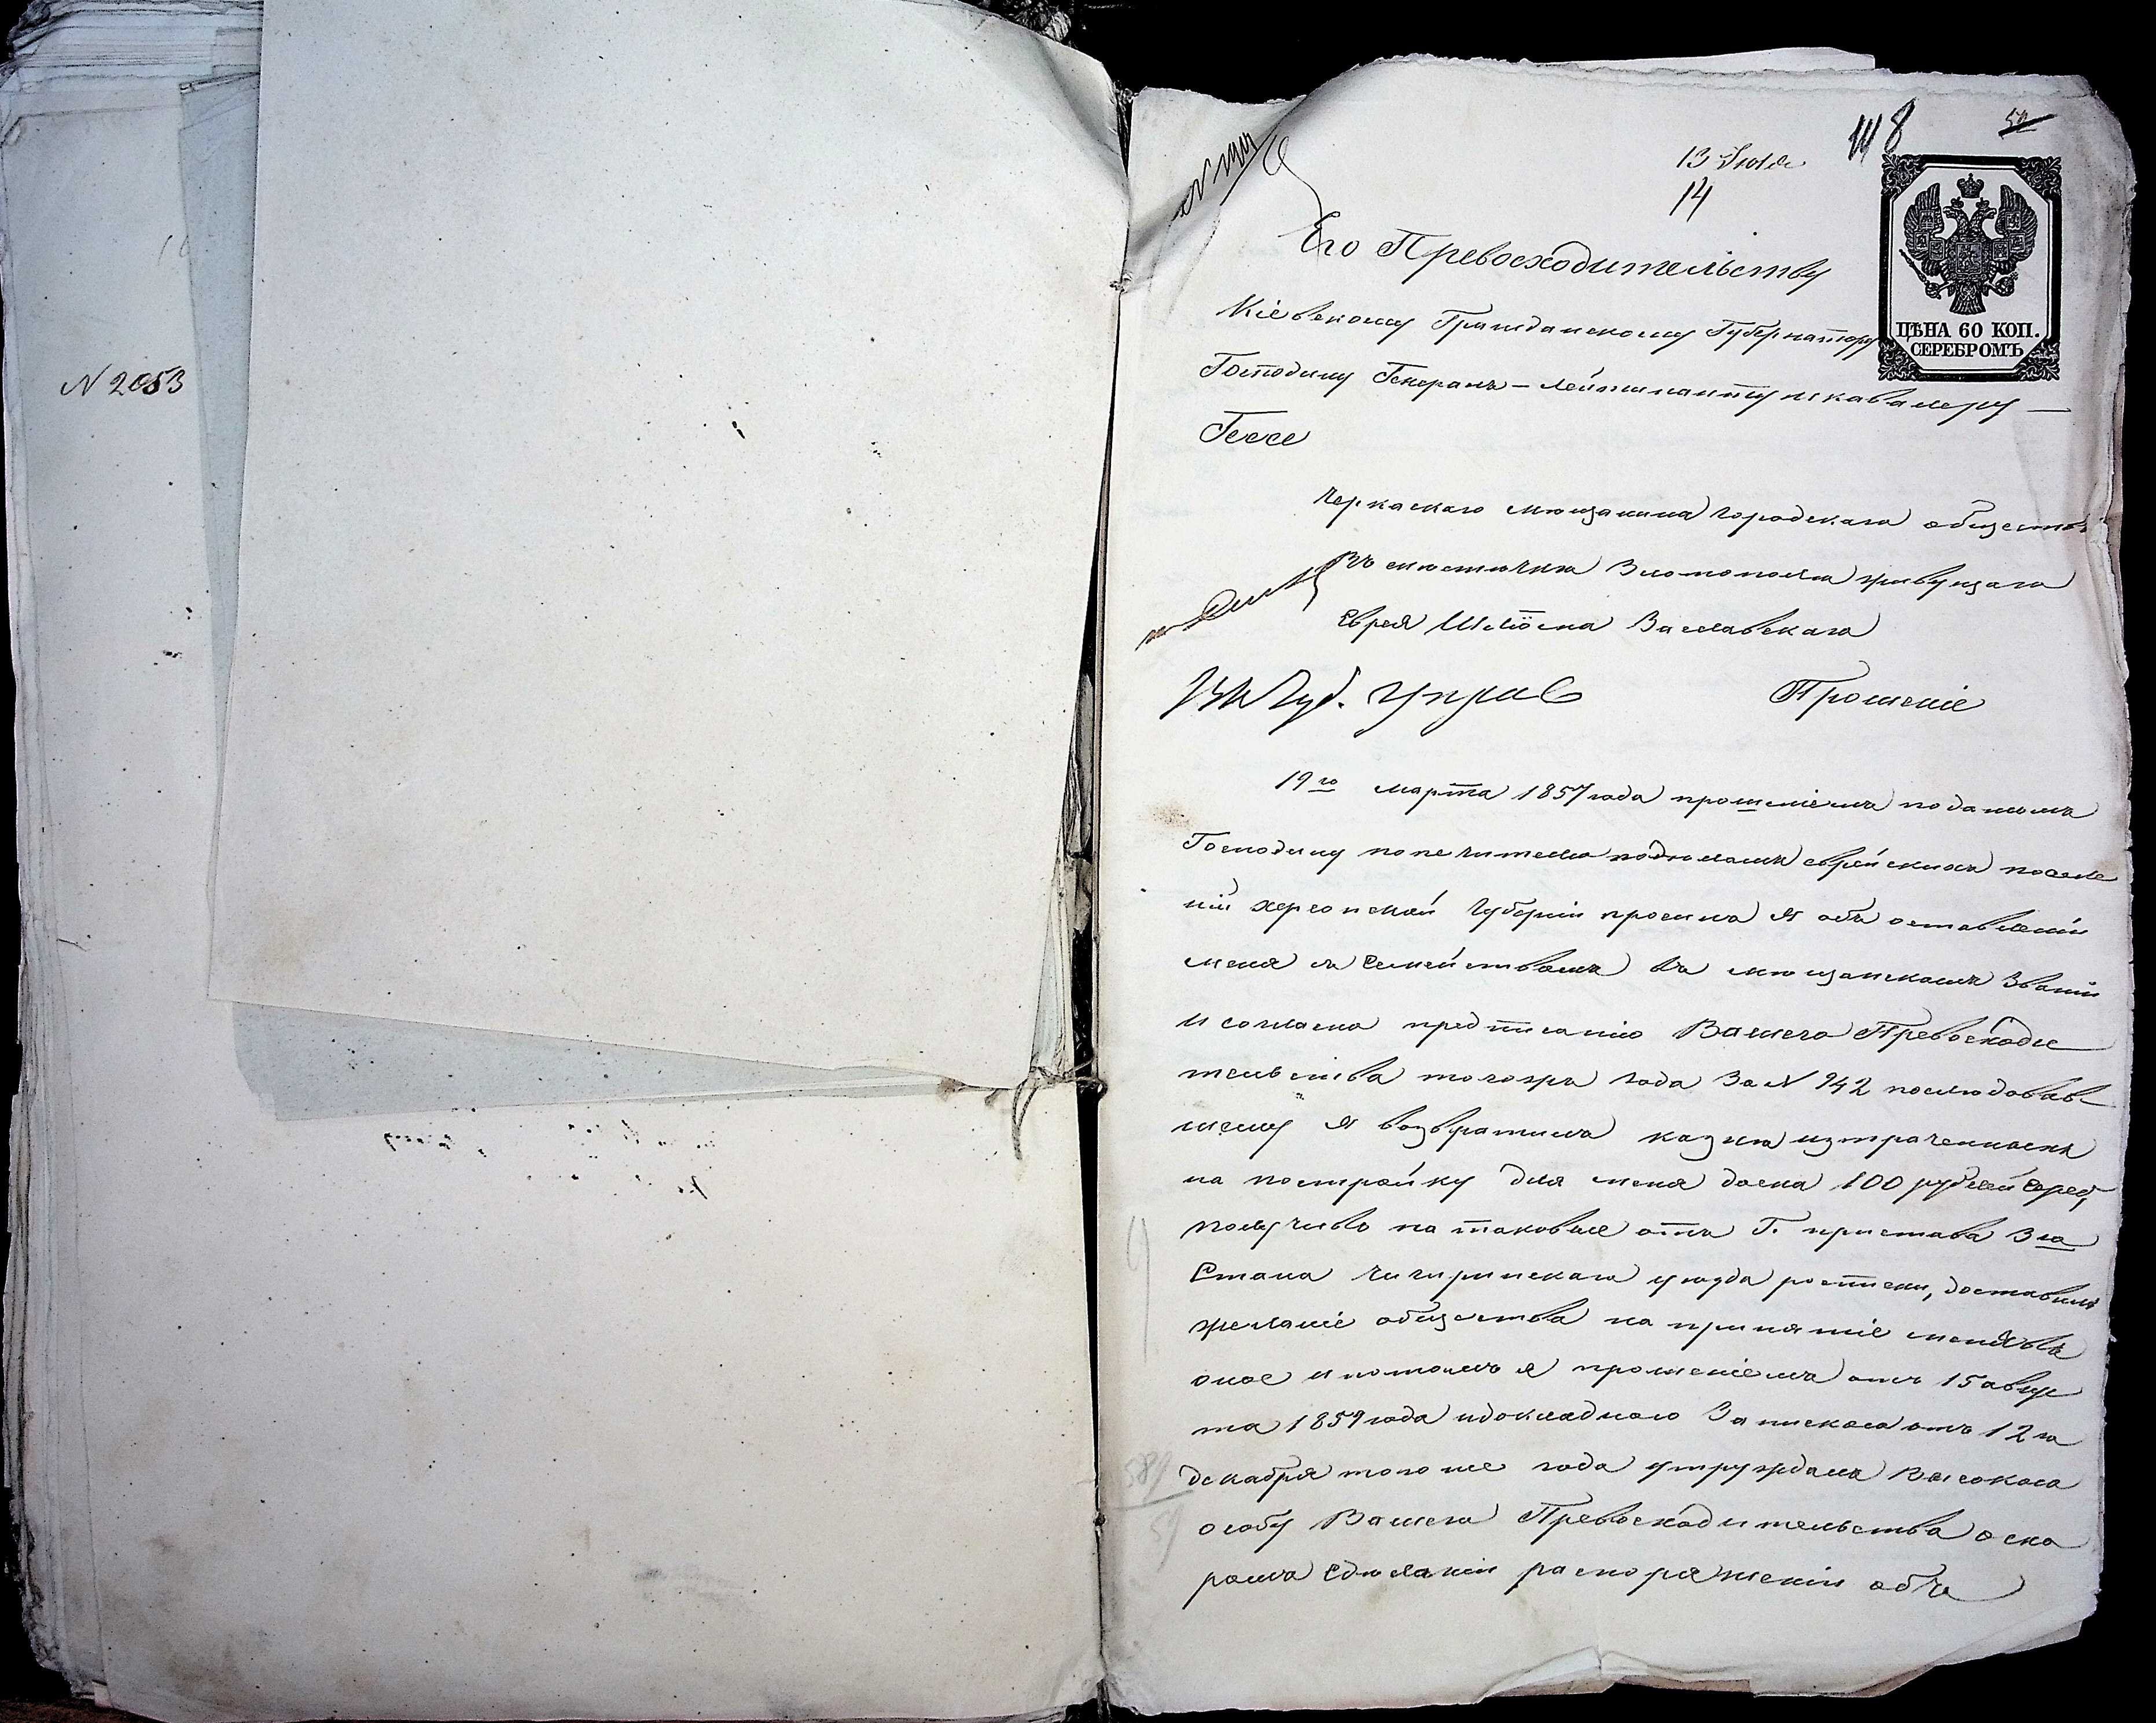 N 2053
118
52
13 Июля
14
ЦѢНА 60 КОП.
СЕРЕБРОМЪ
Его Превосходительству
Кіевскому Гражданскому Губернатору
Господину Генералъ-лейтенанту и кавалеру —
Гессе
Черкаскаго мѣщанина городскаго общества
въ мѣстечкѣ Златополѣ живущаго
Еврея Шлiомa Заславскаго
Прошеніе
19го марта 1857 года прошеніемъ поданнымъ
Господину попечителю надъ еврейскихъ поселе
ній херсонской Губерніи просилъ я объ оставленіи
меня съ Семействомъ въ мѣщанскомъ Званіи
и согласно предписанію Вашего Превосходи
тельства тогожъ года За N 942 послѣдовав
шему я возвратилъ казнѣ изтраченныхъ
на постройку для меня дома 100 рублей Сереб,
получивъ на таковые отъ Г. пристава 3го
Стана Чигиринскаго уѣзда росписки, доставилъ
желаніе общества на принятіе меня въ
оное и потомъ я прошеніемъ отъ 15 авгус
та 1859 года и докладною Запискою отъ 12го
декабря того же года утруждалъ высокою
особу Вашего Превосходительства о ско
ромъ Сдѣланіи распоряженіи объ